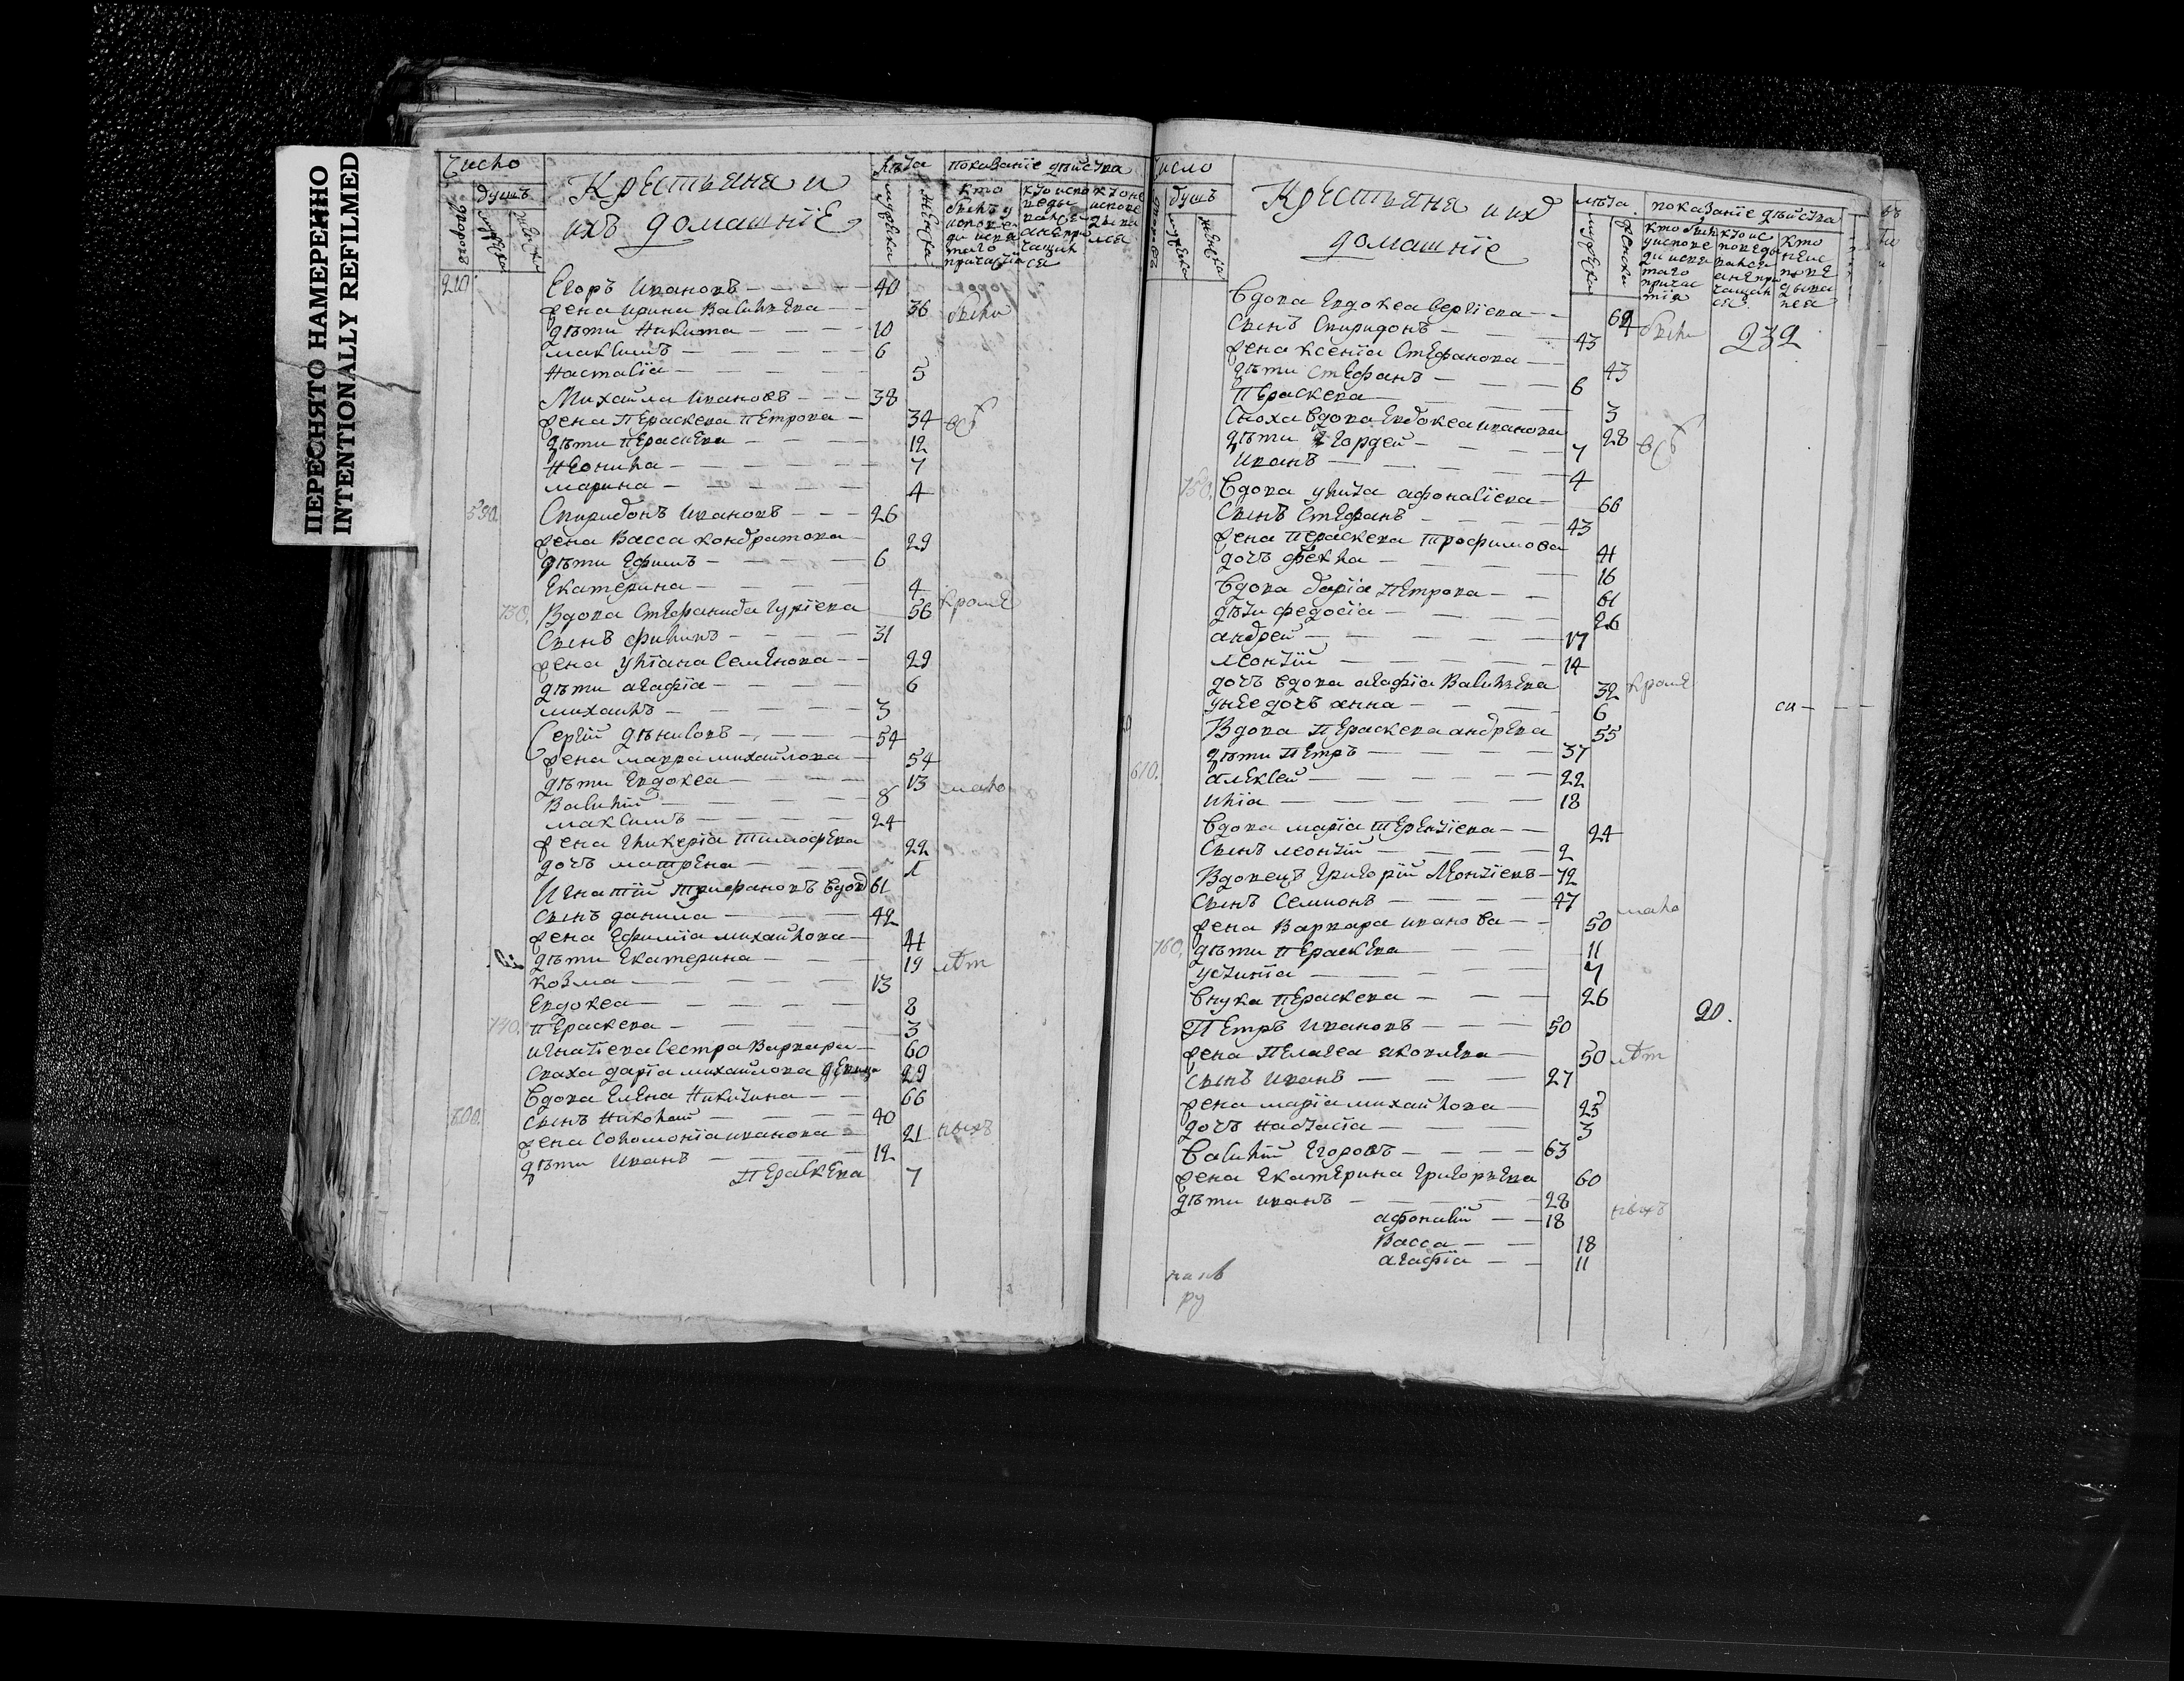 ПЕРЕСНЯТО НАМЕРЕННО
INTENTIONALLY REFILMED
Число
душъ
дворовъ
мужеска
женска
Крестьяня и
ихъ домашнїе
лѣта
мужеска
женска
показанїе дѣйства
кто
былъ у
исповѣ
ди и свя
таго
причастїя
кто испо
веды
вался
а не при
чащал
ся
кто не
испове
дыва
лся
210
Егоръ Ивановъ 40
жена ирина Василъева 36 были
дѣти Никита 10
максимъ 6
Настасїя 5
Михайла Ивановъ 38
жена Пераскева Петрова 34 всѣ
дѣти пераскева 12
Неонила 7
марина 4
590. Спиридонъ Ивановъ 26
жена Васса кондратова 29
дѣти Ефимъ 6
Екатерина 4
730. Вдова Стефанида Гурїева 56 кроме
Сынъ филипъ 31
жена улїана Семенова 29
дѣти агафїя 6
михаилъ 3
Сергїй дѣнисовъ 54
жена мавра михайлова 54
дѣти Евдокеа 13 мало
Василїй 8
максимъ 24
жена гликерїа Тимофѣева 22
дочь матрена 1
Игнатїй Трифановъ вдов 61
сынъ данила 42
жена Ефимїа михайлова 41
дѣти Екатерина 19 лѣт
козма 13
Евдокеа 8
740. пераскева 3
игнатїева сестра Варвара 60
сваха дарїа михайлова девица 29
Вдова Елена Никитина 66
600. сынъ Николай 40
жена Соломонїа иванова 21 ныхъ
дѣти Иванъ 12
Пераскева 7
Число
душъ
дворовъ
мужеска
женска
Крестьяня и их
домашнїе
лѣта
мужеска
женска
показанїе дѣйства
кто был
у испове
ди и свя
таго
прича
тїя
кто ис
поведы
вался
а не при
чащал
ся
кто
не ис
пове
дыва
лся
Вдова Евдокеа Сергїева 64 были 232
Сынъ Спиридонъ 43
жена ксенїа Стефанова 43
дѣти Стефанъ 6
Пераскева 3
Сноха вдова Евдокеа иванова 28 всѣ
дѣти Гордей 7
Иванъ 4
750. Вдова улита афонасїева 66
Сынъ Стефанъ 43
жена Пераскева Трофимова 41
дочь фекла 16
Вдова дарїа Петрова 61
дѣти федосїа 26
андрей 17
леонтїй 14
дочь вдова агафїа Василъева 32 кроме
у нее дочь анна 6
Вдова Пераскева андреева 55
дѣти Петръ 37
610. алексей 22
илїа 18
Вдова марїа Терентїева 24
Сынъ леонтїй 2
Вдовецъ Григорїй Леонтїевъ 72
Сынъ Семионъ 47
жена Варвара иванова 50 мало
760. дѣти Пераскева 11
устинїа 7
внука пераскева 26
20.
Петръ Ивановъ 50
жена Пелагеа яковлева 50 лѣт
сынъ иванъ 27
жена марїа михайлова 25
дочь настасїа 3
Василїй Егоровъ 63
жена Екатерина Григоръева 60
дѣти иванъ 28
афонасїй 18 ныхъ
Васса 18
агафїа 11
ру